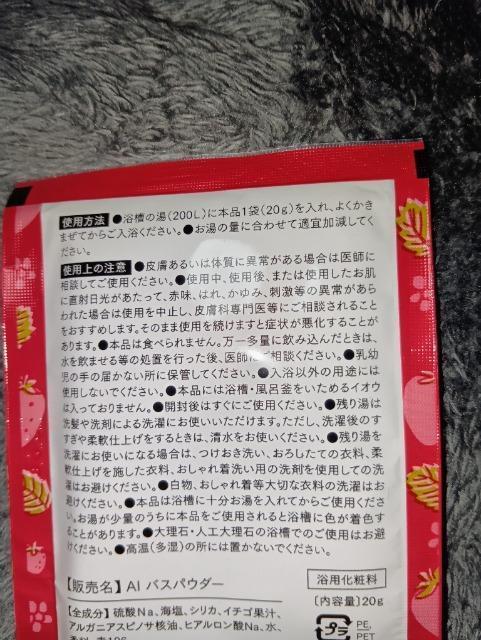 使用方法 ●浴槽の湯(200L)に本品1袋(20g)を入れ、よくかき
まぜてからご入浴ください。●お湯の量に合わせて適宜加減してく
ださい。
使用上の注意 ●皮膚あるいは体質に異常がある場合は医師に
相談してご使用ください。●使用中、使用後、または使用したお肌
に直射日光があたって、赤味、はれ、かゆみ、刺激等の異常があら
われた場合は使用を中止し、皮膚科専門医等にご相談されること
をおすすめします。そのまま使用を続けますと症状が悪化することが
あります。●本品は食べられません。万一多量に飲み込んだときは、
水を飲ませる等の処置を行った後、医師にご相談ください。●乳幼
児の手の届かない所に保管してください。●入浴以外の用途には
使用しないでください。●本品には浴槽・風呂釜をいためるイオウ
は入っておりません。●開封後はすぐにご使用ください。●残り湯は
洗髪や洗剤による洗濯にお使いいただけます。ただし、洗濯後のす
すぎや柔軟仕上げをするときは、清水をお使いください。●残り湯を
洗濯にお使いになる場合は、つけおき洗い、おろしたての衣料、柔
軟仕上げを施した衣料、おしゃれ着洗い用の洗剤を使用しての洗
濯はお避けください。●白物、おしゃれ着等大切な衣料の洗濯はお
避けください。●本品は浴槽に十分お湯を入れてからご使用くださ
い。お湯が少量のうちに本品をご使用されると浴槽に色が着色す
ることがあります。●大理石・人工大理石の浴槽でのご使用はお避
けください。●高温(多湿)の所には置かないでください。
【販売名】AI バスパウダー
浴用化粧料
【全成分】硫酸Na、海塩、シリカ、イチゴ果汁、
〔内容量〕20g
アルガニアスピノサ核油、ヒアルロン酸Na、水、
プラ
PE,
PET
香料、赤106